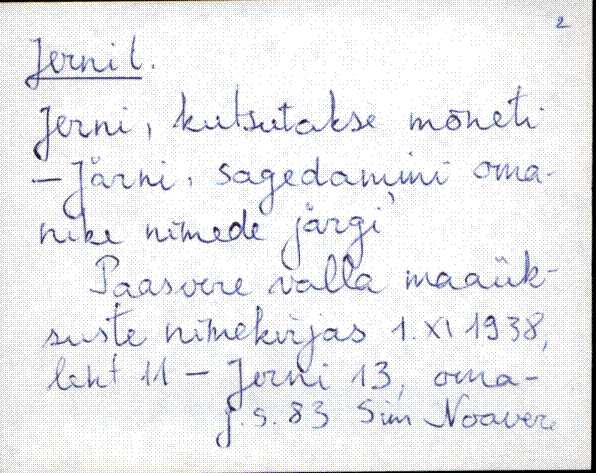 2
Jerni t.
Jerni, kutsutakse mõneti
– Järni, sagedamini oma-
nike nimede järgi
Paasvere valla maaük-
suste nimekirjas 1. XI 1938,
leht 11 – Jerni 13, oma-
j. s. 83 Siim Noavere